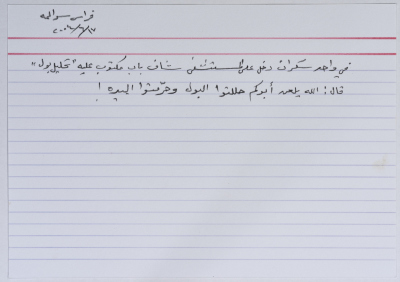 فراس سوالمه
في واحد سكران دخل على المستشفى شاف باب مكتوب عليه "تحليل بول"
قال: الله يلعن أبوكم حللتوا البول وحرمتوا البيره!